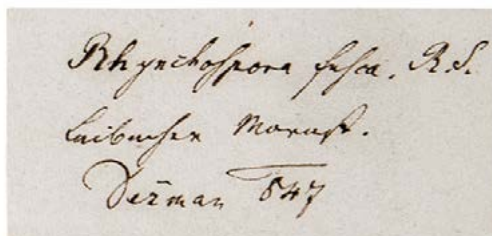 Rhynchospora fusca. R.S.
Laibacher Morast.
Dežman 847